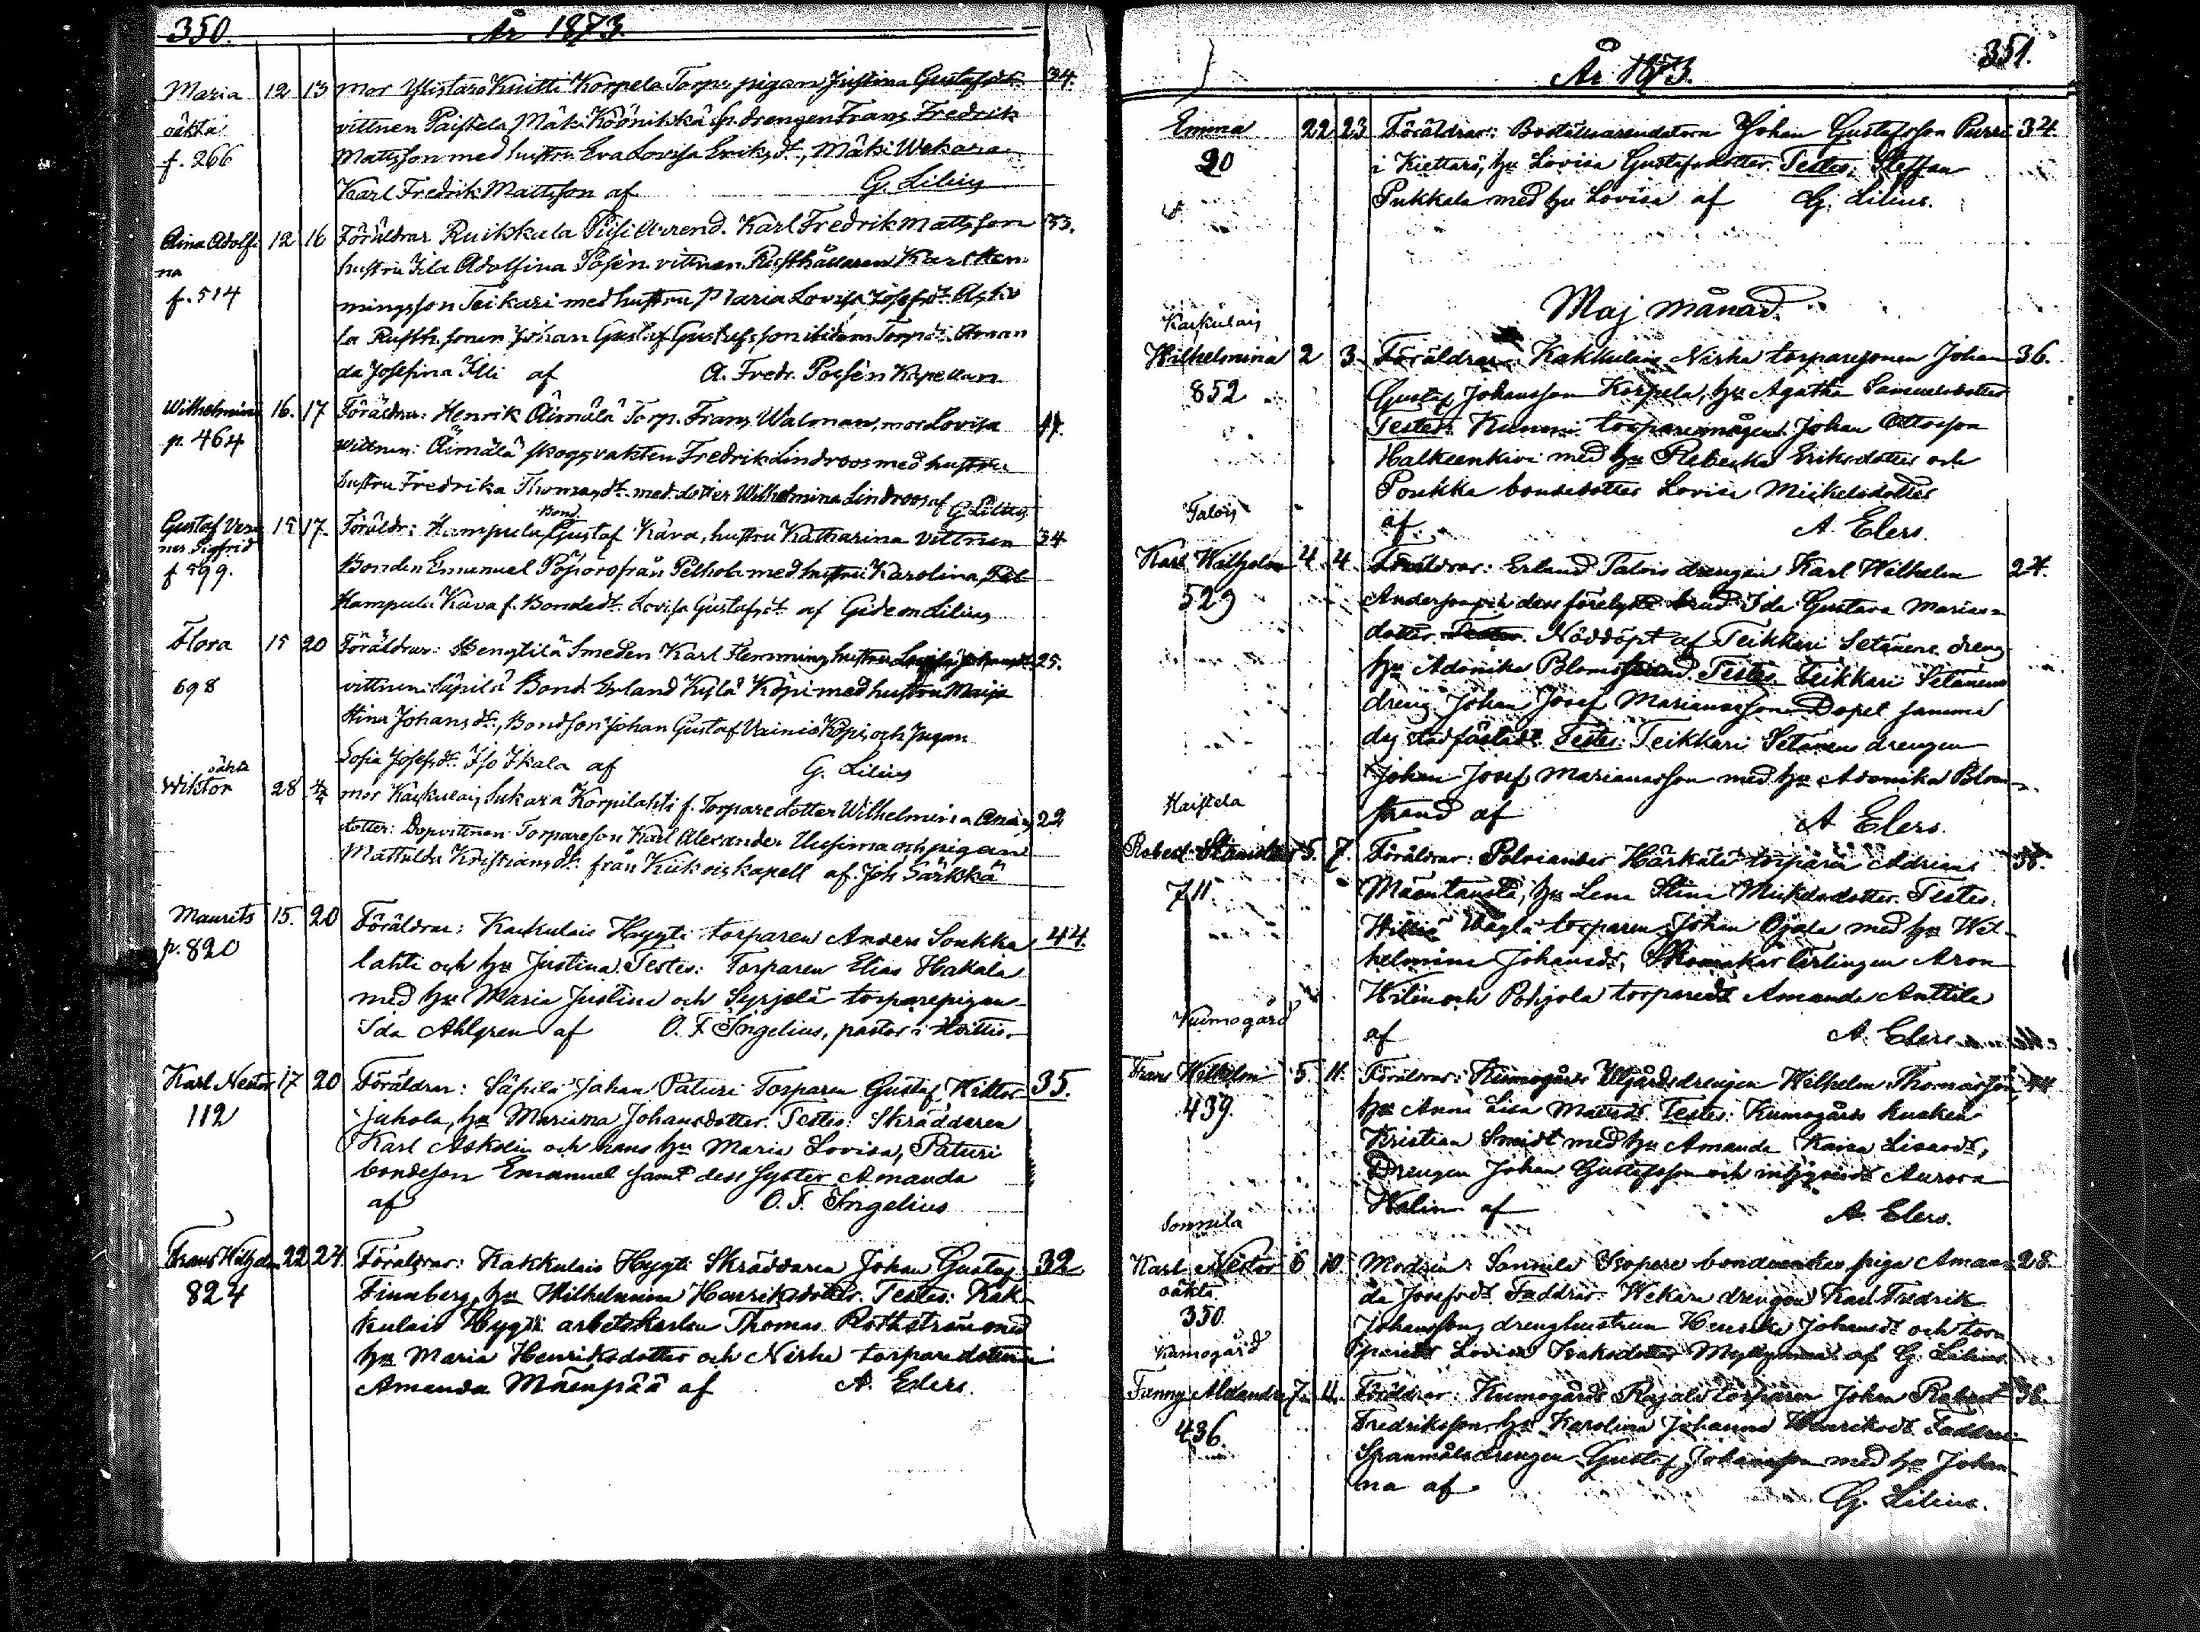 350.
År 1873.
Maria 12 13 mor Ylistaro Knitti Korpela Torps pigan Justina Gustafsdt. 34.
oäkta vittnen Paistela Mäki Köönikkä sp. drengen Frans Fredrik
f. 266 Mattsson med hustru Eva Lovisa Eriksdt., Mäki Wekara
Karl Fredrik Mattsson af G. Lilius
Aina Adolfi- 12 16 Föräldrar Ruikkala Arrend. Karl Fredrik Mattsson 33.
na hustru Ida Adolfina Posén vittnen Rusthållaren Karl Hen-
f. 514 mingsson Teikari med hustru Maria Lovisa Josefsdt.
la Rusth. sonen Johan Gustaf Gustafsson ibidem Torpdt. Aman
da Josefina Illi af A. Fredr. Posén Kapellan
Wilhelmina 16. 17 Föräldrar: Henrik Äimälä Torp. Frans Walman, mor Lovisa
p. 464 vittnen: Äimälä skogsvakten Fredrik Lindroos med hustru
hustru Fredrika Thomasdt. med dotter Wilhelmina Lindroos af G Lilius
Gustaf Ver- 15 17. Föräldr: Hampula Bond. Gustaf Kàva, hustru Katharina vittnen 34
ner Sigfrid Bonden Emanuel från Pelhola med hustru Karolina,
f 599. Hampula Kava f. Bondedt. Lovisa Gustafsdt. af Gideon Lilius
Flora 15 20 Föräldrar: Bengtilä Smeden Karl Flemming hustru 25.
698 vittnen: Säpilä Bond. Erland Kylä Köpi med hustru Maija
Stina Johansdt., Bondson Johan Gustaf Vainio Köpi och Pigan
Sofia Josefsdt. Iso Ikala af G. Lilius
oäkta
Wiktor 28 4/4 mor Kakkulais Sukara Korpilahti f. Torpare dotter Wilhelmina 22
dotter: Dopvittnen Torpareson Karl Alexander Uusjima och pigan
Mathilda Kristiansdt. från Kiikois kapell af. Joh Särkkä
Maurits 15. 20 Föräldrar: Kakkulais Hyggti torparen Anders Soukka 44.
p. 820 lahti och hu Justina. Testes: Torparen Elias Hakala
med hu Maria Justina och Syrjälä torparepigan
Ida Ahlgren af O. F. Ingelius, pastor i Hvittis.
Karl Nestor 17 20 Föräldrar: Säpilä Johan Paturi Torparen Gustaf Hiltor 35.
112 juhola, hu Mariana Johansdotter. Testes: Skräddaren
Karl Askolin och hans hu Maria Lovisa, Paturi
bondeson Emanuel samt dess syster Amanda
af O. F. Ingelius
Frans Wilhelm 22 24. Föräldrar: Kakkulais Hyggti Skräddaren Johan Gustaf 32
824 Finnberg, hu Wilhelmina Henriksdotter. Testes: Kak-
kulais Hyggti arbetskarlen Thomas Rothström med
hu Maria Henriksdotter och Nirha torparedottern
Amanda Mäenpää af A. Elers.
351.
År 1873.
Emma 22 23 Föräldrar: Boställsarrendatorn Johan Gustafsson Purri 34.
20 i Kiettarö, hu Lovisa Gustafsdotter. Testes: Steffan
Pukkala med hu Lovisa af G. Lilius.
Maj månad.
Kakkulais
Wilhelmina 2 3. Föräldrar: Kakkulais Nirha torparesonen Johan 36.
852 Gustaf Johansson Korpela, hu Agatha Samuelsdotter
Testes: Kunni torparemågen Johan Ottosson
Halkeenkivi med hu Rebecka Eriksdotter och
Poukka bondedotter Lovisa Mickelsdotter
af. A. Elers.
Talois
Karl Wilhelm 4 4 Föräldrar: Erland Talois drengen Karl Wilhelm 24.
529 Andersson och dess förelyste brud Ida Gustava Marias-
dotter. Nöddöpt af Teikkari Setänens dreng
hu Adamika Blomstrand. Testes: Teikkari Setänens
dreng Johan Josef Marianasson. Dopet samma
dag stadfästadt. Testes: Teikkari Setänens drengen
Johan Josef Marianasson med hu Adamika Blom-
strand af A Elers.
Haistela
Robert 5. 7. Föräldrar: Polviander Härkälä torparen Adrian
711. Mäentausta, hu Lena Stina Mickelsdotter. Testes:
torparen Johan Ojala med hu Wil-
helmina Johansdr, Skomakar lärlingen Aron
Hilén och Pohjola torparedt Amanda Anttila
af A. Elers
Kumogård
Frans Wilhelm 5. 11. Föräldrar: Kumogårds drengen Wilhelm Thomasson
439. hu Anna Lisa Mattsdt. Testes: Kumogårds kusken
Kristian Smidt med hu Amanda Karin Lisasdt,
Drengen Johan Gustafsson och inhysesdt Aurora
Walin af A. Elers.
Sonnila
Karl Nestor 6 10. Modren: Sonnila Isopere bondeenkas piga Aman- 28.
oäkta da Josefsdt. Faddrar: Wekara drengen Karl Fredrik
350 Johansson, drenghustrun Henrika Johansdt och torp
paredr Lovisa Isaksdotter Myllymaa af G. Lilius.
Kumogård
Fanny Aldondra 7. 11. Föräldrar: Kumogårds Rajala torparen Johan Robert 36.
436. Fredriksson, hu Karolina Johanna Henriksdt. Faddrar:
Spannmålsdrengen Gustaf Johansson med hu Johan
na af G. Lilius.